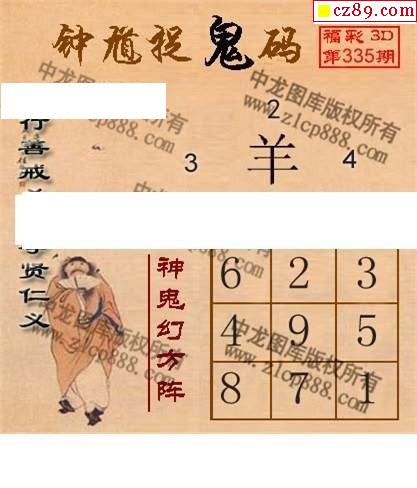 cz89.com
钟馗捉鬼码
福彩 3D
第335期
2
3 羊 4
行善戒
贤仁义
神鬼幻方阵
6 2 3
4 9 5
8 7 1
中龙图库版权所有
www.zlcp888.com
中龙图库版权所有
www.zlcp888.com
中龙图库版权所有
www.zlcp888.com